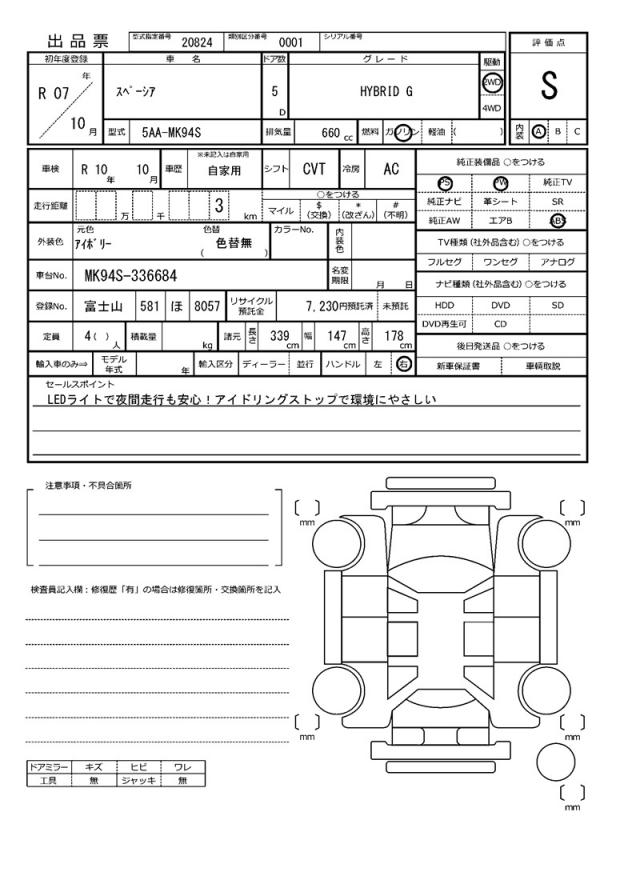 出品票 型式指定番号 20824 類別区分番号 0001 シリアル番号
初年度登録 車名 ドア数 グレード 駆動 評価点
R 07 年 10 月 スペーシア 5 D HYBRID G 2WD 4WD S
型式 5AA-MK94S 排気量 660 cc 燃料 ガソリン 軽油 ( ) 内装 A B C
車検 R 10 年 10 月 車歴 ※未記入は自家用 自家用 シフト CVT 冷房 AC 純正装備品 ○をつける
PS PW 純正TV
走行距離 万 千 3 km ○をつける 純正ナビ 革シート SR
マイル $ (交換) * (改ざん) # (不明) 純正AW エアB ABS
外装色 元色 アイボリー 色替 ( 色替無 ) カラーNo. 内装色 TV種類 (社外品含む) ○をつける
フルセグ ワンセグ アナログ
車台No. MK94S-336684 名変期限 月 日 ナビ種類 (社外品含む) ○をつける
登録No. 富士山 581 ほ 8057 リサイクル預託金 7,230円預託済 未預託 HDD DVD SD
DVD再生可 CD
定員 4 ( ) 人 積載量 kg 諸元 長さ 339 cm 幅 147 cm 高さ 178 cm 後日発送品 ○をつける
輸入車のみ⇒ モデル年式 年 輸入区分 ディーラー 並行 ハンドル 左 右 新車保証書 車輌取説
セールスポイント
LEDライトで夜間走行も安心！アイドリングストップで環境にやさしい
注意事項・不具合箇所
mm mm
検査員記入欄：修復歴「有」の場合は修復箇所・交換箇所を記入
mm mm
ドアミラー キズ ヒビ ワレ
工具 無 ジャッキ 無
mm